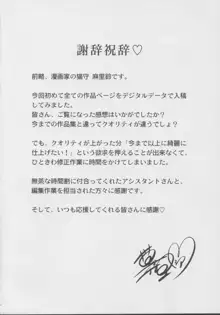 謝辞祝辞♡
前略、漫画家の猫守 麻里鈴です。
今回初めて全ての作品ページをデジタルデータで入稿
してみました。
皆さん、ご覧になった感想はいかがでしたか？
今までの作品集と違ってクオリティが違うでしょ？
でも、クオリティが上がった分「今まで以上に綺麗に
仕上げたい！」という欲求を押さえることが出来なくて、
ひときわ修正作業に時間をかけてしまいました。
無茶な時間割に付合ってくれたアシスタントさんと、
編集作業を担当された方々に感謝です。
そして、いつも応援してくれる皆さんに感謝♡